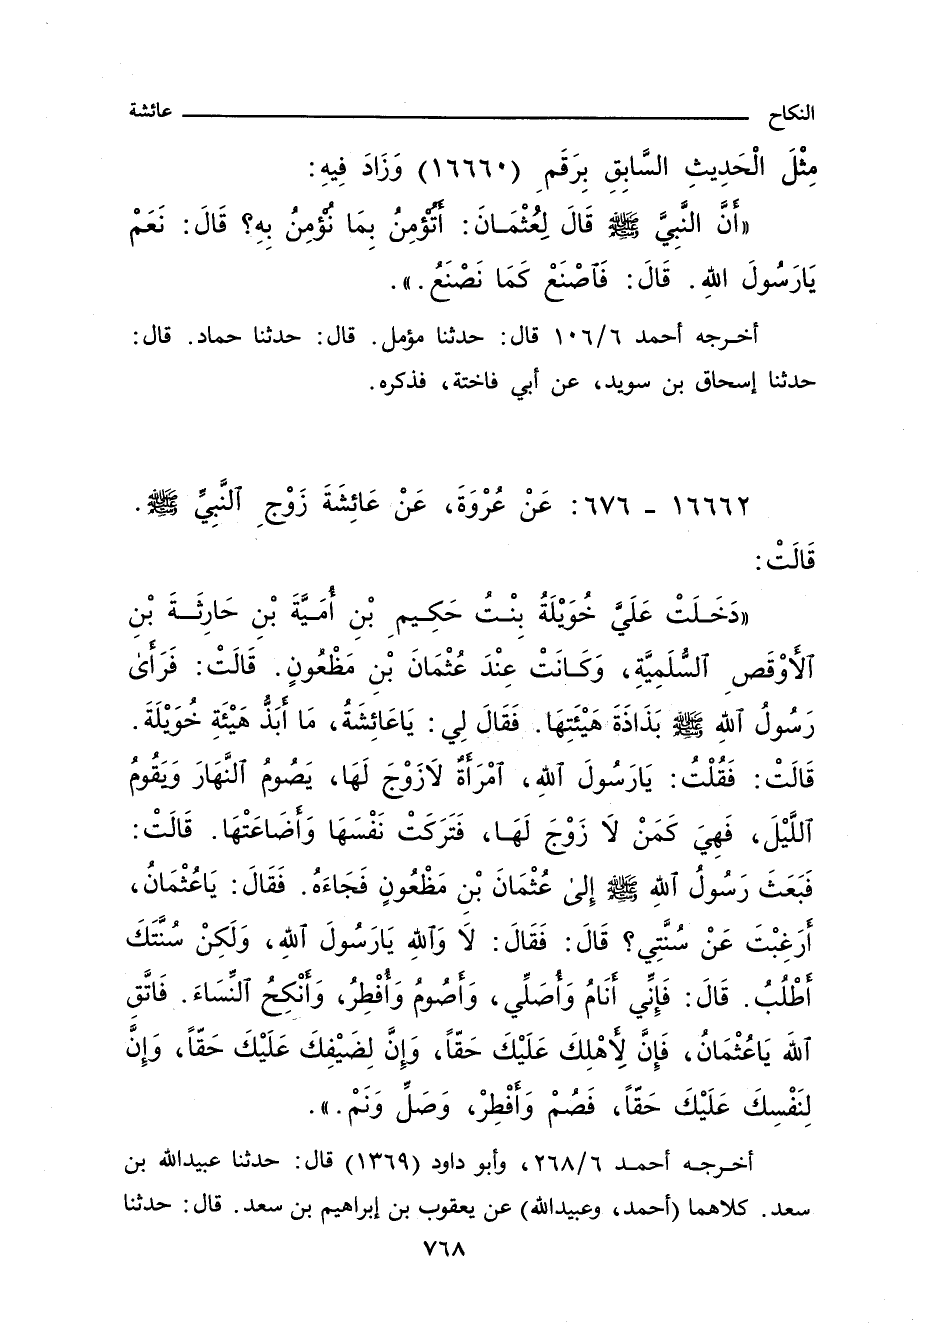 النكاح عائشة
مِثْلَ الْحَدِيثِ السَّابِقِ بِرَقَمِ (١٦٦٦٠) وَزَادَ فِيهِ:
«أَنَّ النَّبِيَّ ﷺ قَالَ لِعُثْمَـانَ: أَتُؤْمِنُ بِمَا نُؤْمِنُ بِهِ؟ قَالَ: نَعَمْ
يَارَسُولَ اللهِ. قَالَ: فَٱصْنَعْ كَمَا نَصْنَعُ.».
أخـرجه أحمد ١٠٦/٦ قال: حدثنا مؤمل. قال: حدثنا حماد. قال:
حدثنا إسحاق بن سويد، عن أبي فاختة، فذكره.
١٦٦٦٢ ـ ٦٧٦: عَنْ عُرْوَةَ، عَنْ عَائِشَةَ زَوْجِ ٱلنَّبِيِّ ﷺ.
قَالَتْ:
«دَخَـلَتْ عَلَيَّ خُوَيْلَةُ بِنْـتُ حَكِـيمِ بْنِ أُمَـيَّةَ بْنِ حَارِثَـةَ بْنِ
ٱلأَوْقَصِ ٱلسُّلَمِيَّةِ، وَكَـانَتْ عِنْدَ عُثْمَانَ بْنِ مَظْعُونٍ. قَالَتْ: فَرَأَىٰ
رَسُولُ ٱللهِ ﷺ بَذَاذَةَ هَيْئَتِهَا. فَقَالَ لِي: يَاعَائِشَةُ، مَا أَبَذُّ هَيْئَةِ خُوَيْلَةَ.
قَالَتْ: فَقُلْتُ: يَارَسُولَ ٱللهِ، ٱمْرَأَةٌ لَازَوْجَ لَهَا، يَصُومُ ٱلنَّهَارَ وَيَقُومُ
ٱللَّيْلَ، فَهِيَ كَمَنْ لَا زَوْجَ لَهَـا، فَتَرَكَتْ نَفْسَهَا وَأَضَاعَتْهَا. قَالَتْ:
فَبَعَثَ رَسُولُ ٱللهِ ﷺ إِلَىٰ عُثْمَانَ بْنِ مَظْعُونٍ فَجَاءَهُ. فَقَالَ: يَاعُثْمَانُ،
أَرَغِبْتَ عَنْ سُنَّتِي؟ قَالَ: فَقَالَ: لَا وَٱللهِ يَارَسُولَ ٱللهِ، وَلَكِنْ سُنَّتَكَ
أَطْلُبُ. قَالَ: فَإِنِّي أَنَامُ وَأُصَلِّي، وَأَصُومُ وَأُفْطِرُ، وَأَنْكِحُ ٱلنِّسَاءَ. فَاتَّقِ
ٱللهَ يَاعُثْمَانُ، فَإِنَّ لِأَهْلِكَ عَلَيْكَ حَقّاً، وَإِنَّ لِضَيْفِكَ عَلَيْكَ حَقّاً، وَإِنَّ
لِنَفْسِكَ عَلَيْكَ حَقّاً، فَصُمْ وَأَفْطِرْ، وَصَلِّ وَنَمْ.».
أخـرجـه أحمـد ٢٦٨/٦، وأبو داود (١٣٦٩) قال: حدثنا عبيدالله بن
سعد. كلاهما (أحمد، وعبيدالله) عن يعقوب بن إبراهيم بن سعد. قال: حدثنا
٧٦٨